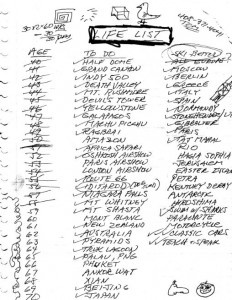 LIFE LIST
AGE TO DO SKI BETTER
40 HALF DOME
41 GRAND CANYON MOSCOW
42 INDY 500 BERLIN
43 DEATH VALLEY GREECE
44 MT. RUSHMORE ITALY
45 DEVIL'S TOWER SPAIN
46 YELLOWSTONE NORMANDY
47 GALAPAGOS STONEHENGE
48 MACHU PICCHU GIBRALTER
49 RAGBRAI PARIS
50 AMAZON TAJ MAHAL
51 AFRICA SAFARI RIO
52 OSHKOSH AIRSHOW HAGIA SOPHIA
53 PARIS AIRSHOW JERUSALEM
54 LONDON AIRSHOW EASTER ISLAND
55 ROUTE 66 PETRA
56 IDITAROD KENTUCKY DERBY
57 NIAGARA FALLS ANTARCTIC
58 MT WHITNEY HIROSHIMA
59 MT SHASTA
60 MONT BLANC
61 NEW ZEALAND MOTORCYCLE
62 AUSTRALIA CLASSIC CARS
63 PYRAMIDS TEACH
64 TRUK LAGOON
65 PALAU, PNG
66 PHUKET
67 ANKOR WAT
68 XIAN
69 BEIJING
70 JAPAN